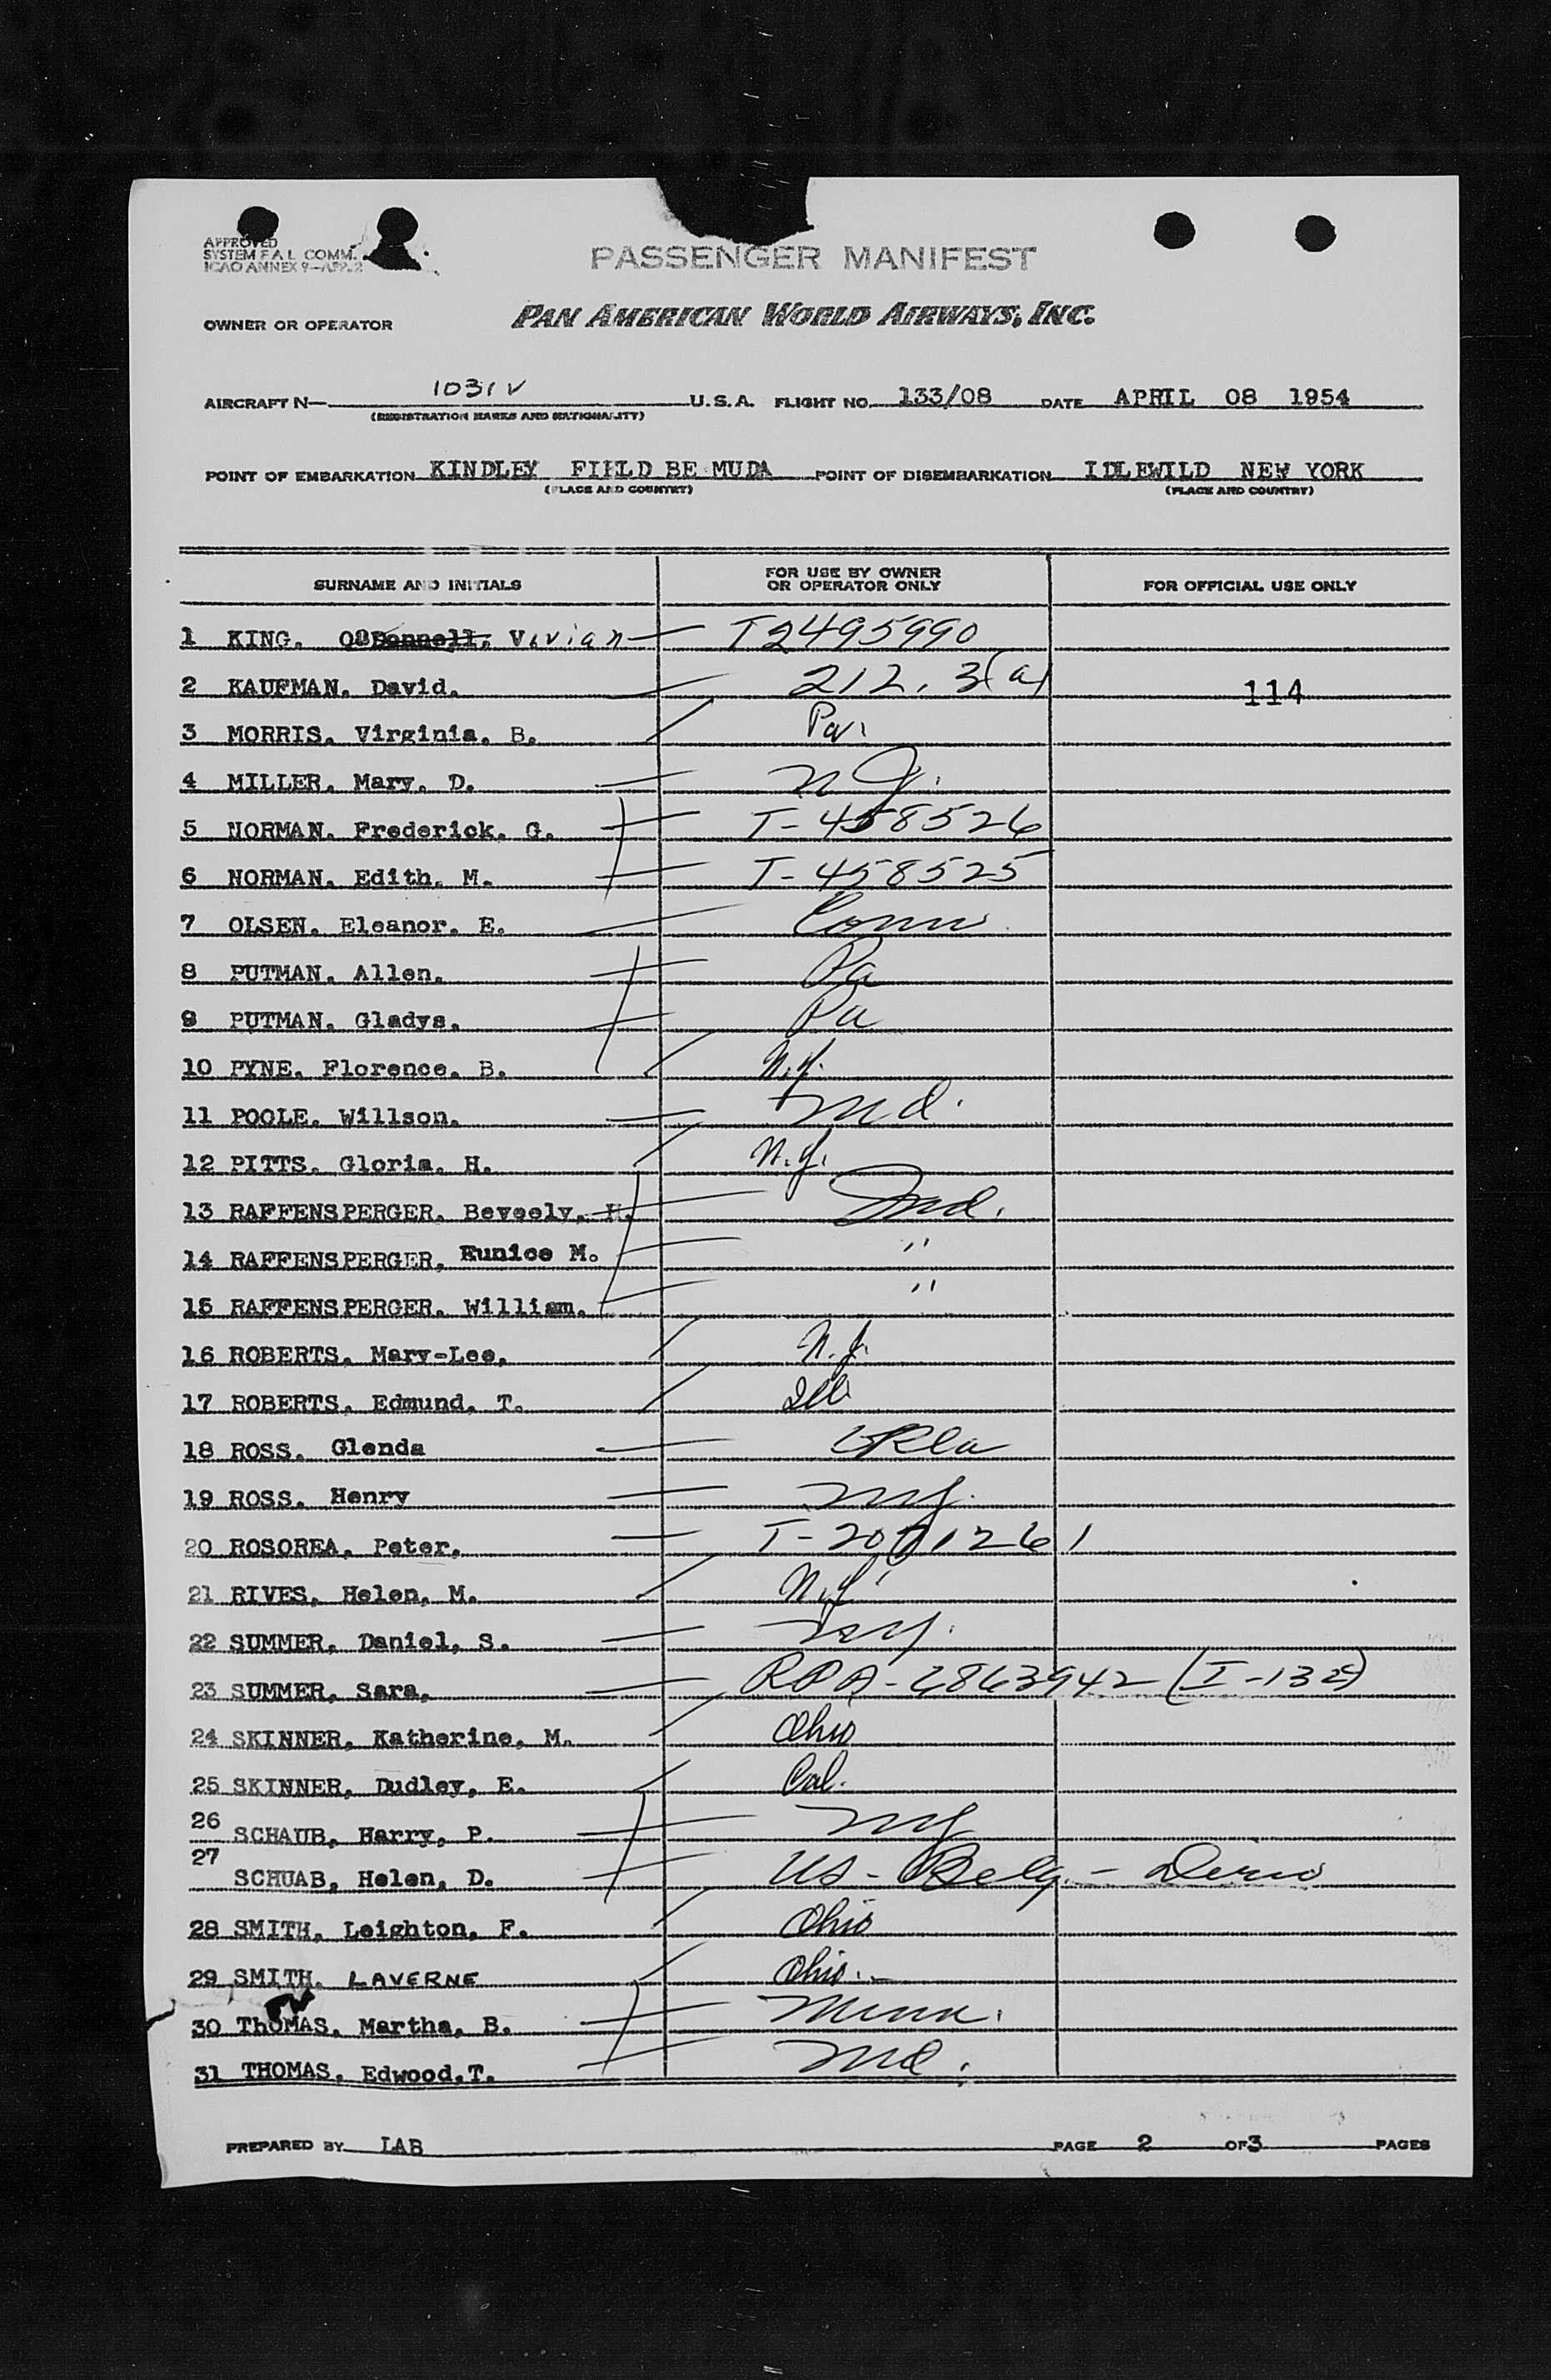 APPROVED
SYSTEM F A L COMM.
ICAO ANNEX 9-APP. 2
PASSENGER MANIFEST
OWNER OR OPERATOR PAN AMERICAN WORLD AIRWAYS, INC.
AIRCRAFT N— 1031V U.S.A. FLIGHT NO. 133/08 DATE APRIL 08 1954
(REGISTRATION MARKS AND NATIONALITY)
POINT OF EMBARKATION KINDLEY FIELD BE MUDA POINT OF DISEMBARKATION IDLEWILD NEW YORK
(PLACE AND COUNTRY) (PLACE AND COUNTRY)
SURNAME AND INITIALS FOR USE BY OWNER OR OPERATOR ONLY FOR OFFICIAL USE ONLY
1 KING. Vivian T2495990
2 KAUFMAN. David. 212.3(a) 114
3 MORRIS. Virginia. B. Pa.
4 MILLER. Mary. D. N J.
5 NORMAN. Frederick. G. T-458526
6 NORMAN. Edith. M. T-458525
7 OLSEN. Eleanor. E. Conn.
8 PUTMAN. Allen. Pa
9 PUTMAN. Gladys. Pa
10 PYNE. Florence. B. N.Y.
11 POOLE. Willson. Md.
12 PITTS. Gloria. H. N.Y.
13 RAFFENSPERGER. Beveely. H. Md.
14 RAFFENSPERGER. Eunice M. "
15 RAFFENSPERGER. William. "
16 ROBERTS. Mary-Lee. N.J.
17 ROBERTS. Edmund. T. Ill
18 ROSS. Glenda
19 ROSS. Henry NY.
20 ROSOREA. Peter. T-2071261
21 RIVES. Helen. M. N.Y.
22 SUMMER. Daniel, S. NY.
23 SUMMER. Sara. (I-132)
24 SKINNER. Katherine, M. Ohio
25 SKINNER, Dudley, E. Cal.
26 SCHAUB, Harry, P. NY
27 SCHUAB, Helen, D. US - Belg -
28 SMITH, Leighton, F. Ohio
29 SMITH. LAVERNE Ohio.
30 ThOMAS. Martha, B. Minn.
31 THOMAS. Edwood.T. Md.
PREPARED BY LAB PAGE 2 OF 3 PAGES